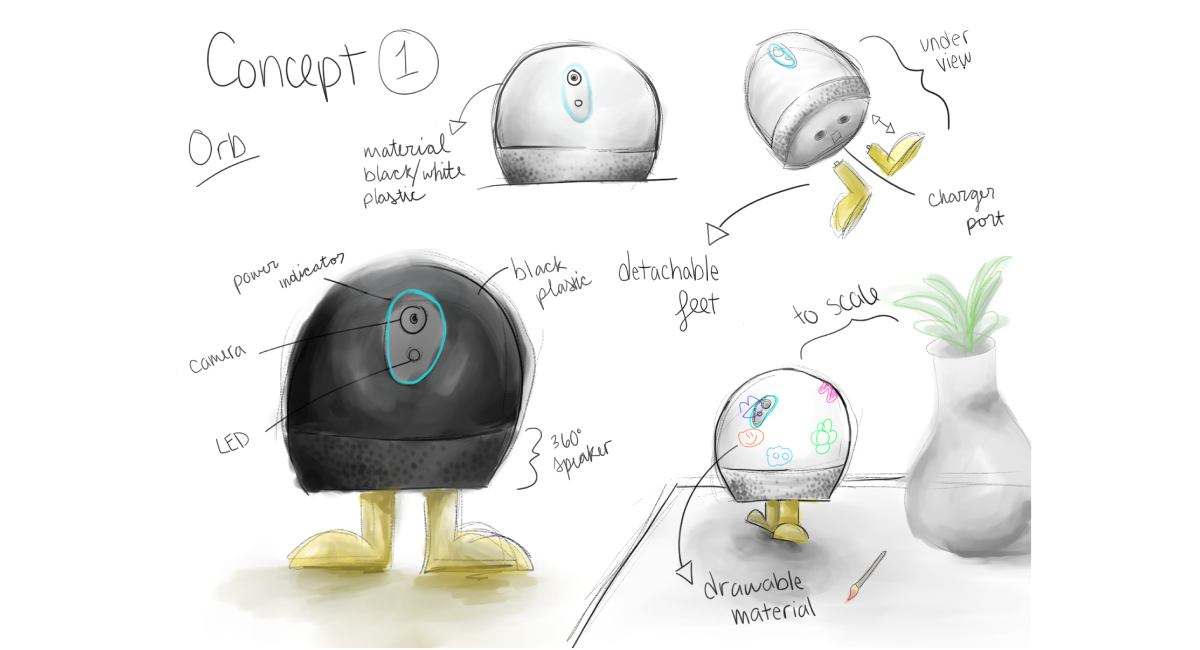 Concept 1
Orb
material
black/white
plastic
under
view
charger
port
detachable
feet
power
indicator
black
plastic
camera
LED
360°
speaker
to scale
drawable
material